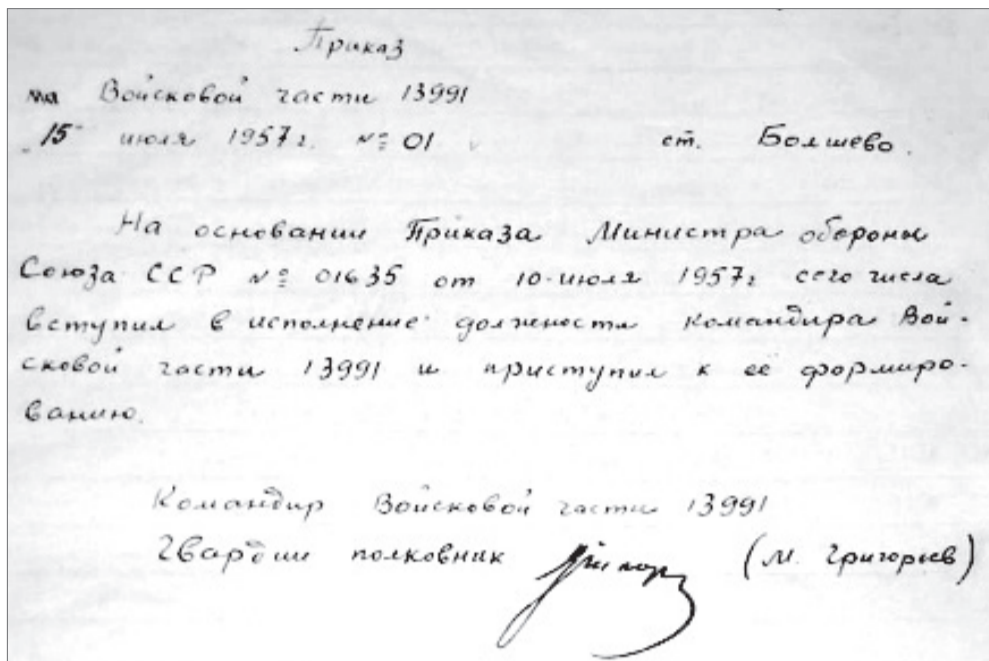 Приказ
на Войсковой части 13991
15 июля 1957г. № 01 ст. Болшево.
На основании Приказа Министра обороны
Союза ССР № 01635 от 10 июля 1957г сего числа
вступил в исполнение должности командира Вой-
сковой части 13991 и приступил к её формиро-
ванию.
Командир Войсковой части 13991
Гвардии полковник (М. Григорьев)